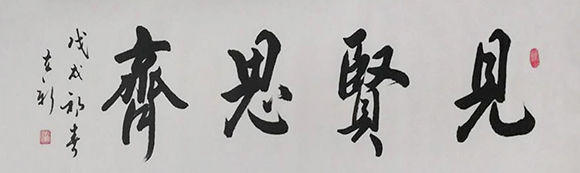 見賢思齊
戊戌初春